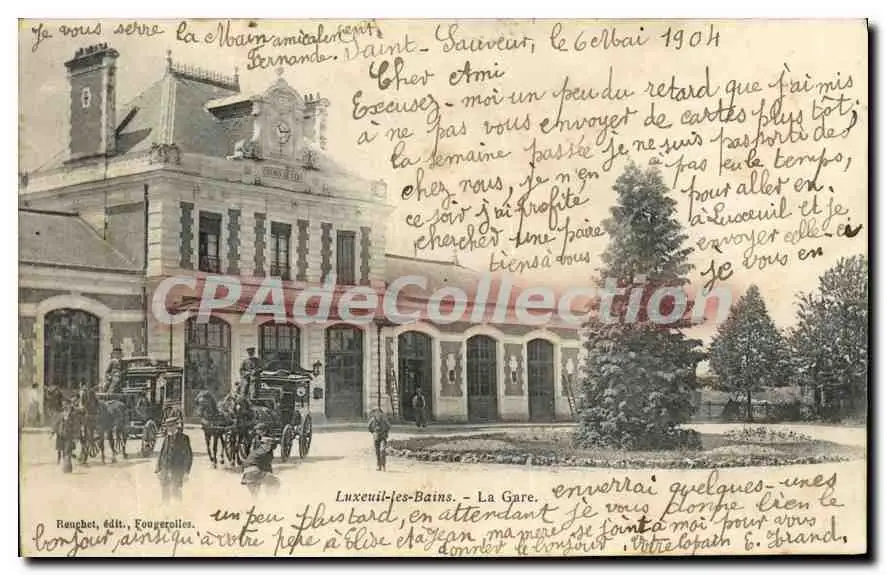 Je vous serre la Main amicalement
Fernande.
Saint-Sauveur, le 6 Mai 1904
Cher Ami
Excusez-moi un peu du retard que j'ai mis
à ne pas vous envoyer de cartes plus tôt;
la semaine passée je ne suis pas sorti de
chez nous, je n'en ai pas eu le temps,
ce soir j'ai profité pour aller en
chercher une paire à Luxeuil et je
tiens à vous envoyer celle-ci
je vous en
CPArtCollection
GARE
Luxeuil-les-Bains. - La Gare.
Reuchet, édit., Fougerolles.
enverrai quelques-unes
un peu plus tard, en attendant je vous donne bien le
bonjour, ainsi qu'à votre père à Elise et à Jean, ma mère se joint à moi pour vous
donner le bonjour. Votre copain E. Grand.